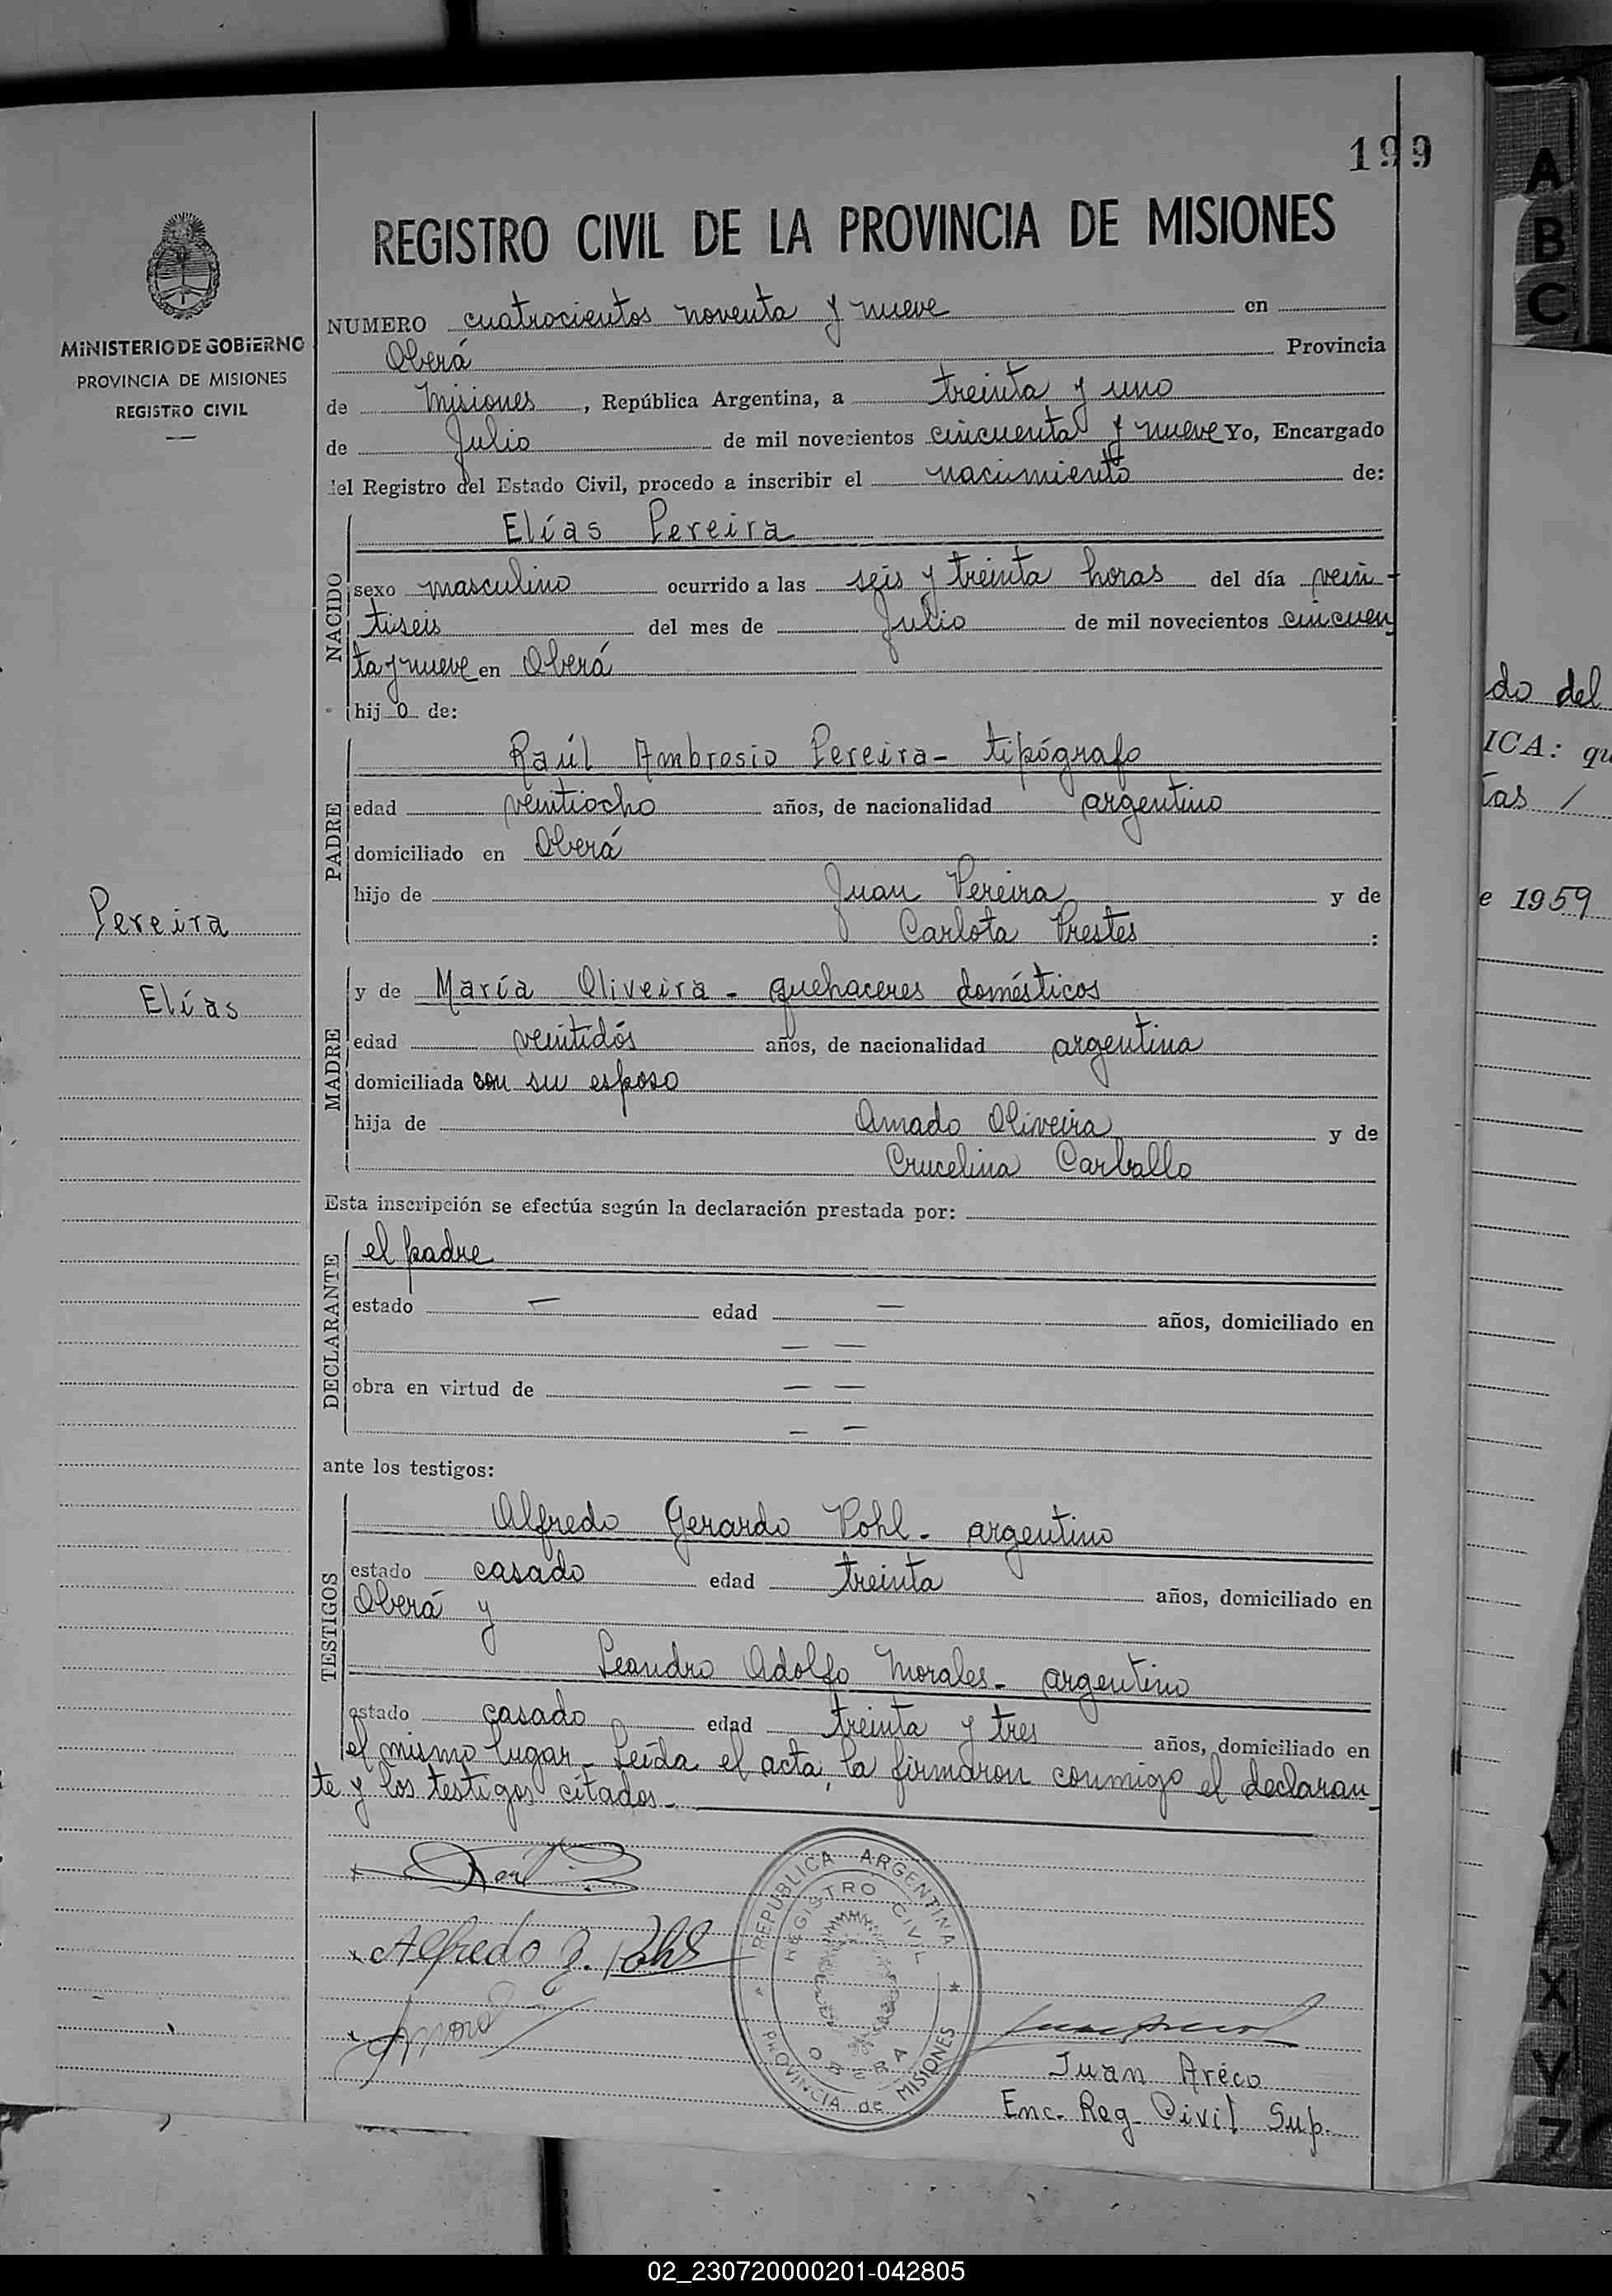 199
REGISTRO CIVIL DE LA PROVINCIA DE MISIONES
MINISTERIO DE GOBIERNO
PROVINCIA DE MISIONES
REGISTRO CIVIL
Pereira
Elías
NUMERO cuatrocientos noventa y nueve en
Oberá Provincia
de Misiones, República Argentina, a treinta y uno
de Julio de mil novecientos cincuenta y nueve Yo, Encargado
del Registro del Estado Civil, procedo a inscribir el nacimiento de:
NACIDO
Elías Pereira
sexo masculino ocurrido a las seis y treinta horas del día vein-
tiseis del mes de Julio de mil novecientos cincuen
ta y nueve en Oberá
hijo de:
PADRE
Raúl Ambrosio Pereira - tipógrafo
edad veintiocho años, de nacionalidad argentino
domiciliado en Oberá
hijo de Juan Pereira y de
Carlota Prestes :
MADRE
y de María Oliveira - quehaceres domésticos
edad veintidós años, de nacionalidad argentina
domiciliada con su esposo
hija de Amado Oliveira y de
Crucelina Carballo
Esta inscripción se efectúa según la declaración prestada por:
DECLARANTE
el padre
estado — edad — años, domiciliado en
— —
obra en virtud de — —
— —
ante los testigos:
TESTIGOS
Alfredo Gerardo Pohl - argentino
estado casado edad treinta años, domiciliado en
Oberá y
Leandro Adolfo Morales - argentino
estado casado edad treinta y tres años, domiciliado en
el mismo lugar - Leída el acta, la firmaron conmigo el declaran
te y los testigos citados.-
Raúl
Alfredo G. Pohl
REPUBLICA ARGENTINA
REGISTRO CIVIL
OBERA
PROVINCIA de MISIONES
Juan Aréco
Enc. Reg. Civil Sup.
do del
ICA: qu
tas /
e 1959
A
B
C
X
Y
Z
02_230720000201-042805